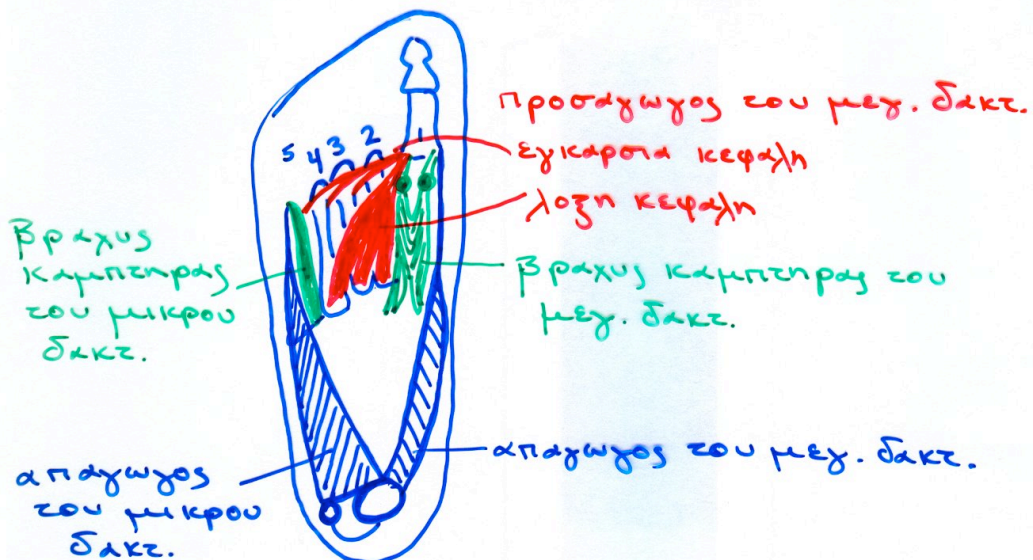 προσάγωγος του μεγ. δακτ.
εγκαρσια κεφαλη
λοξη κεφαλη
5 4 3 2 1
βραχυς
καμπτηρας
του μικρου
δακτ.
βραχυς καμπτηρας του
μεγ. δακτ.
απαγωγος του μεγ. δακτ.
απαγωγος
του μικρου
δακτ.